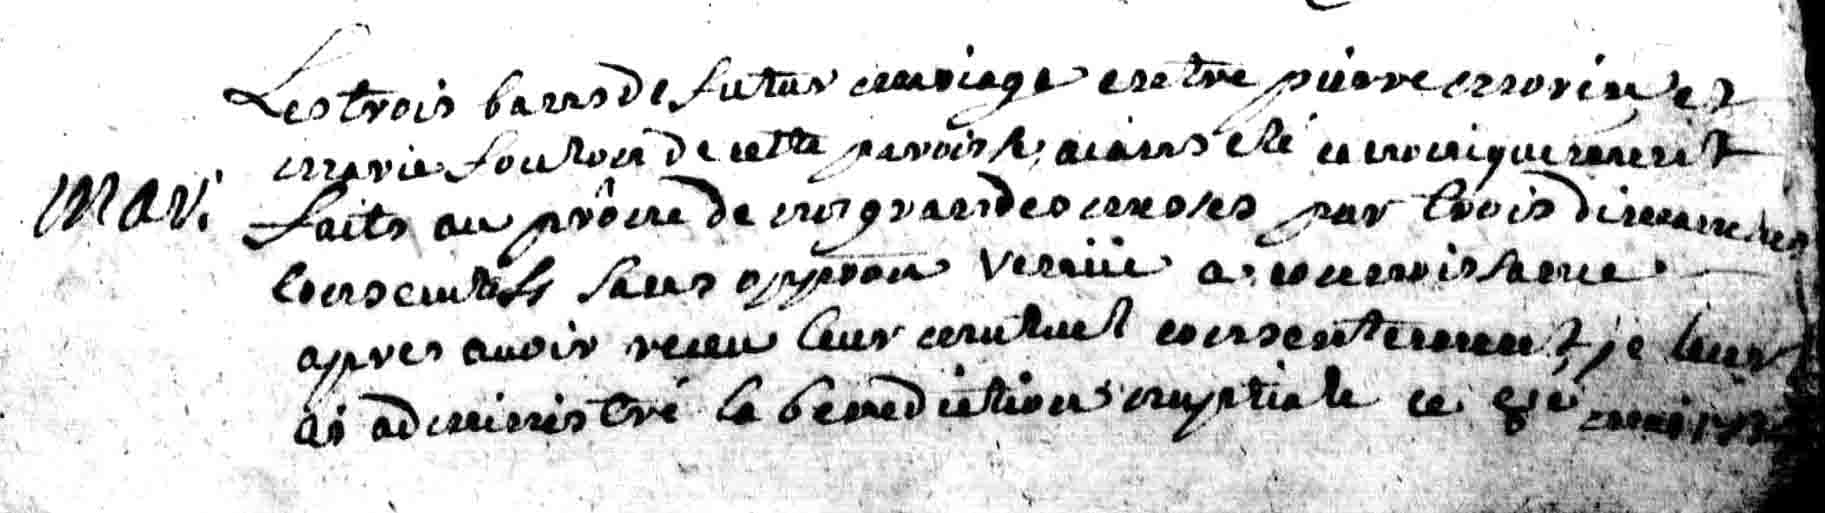 Les trois bans de futur mariage entre pierre morin et
Mari.
marie soulois de cette paroisse, aians eté canoniquement
faits au prône de nos grandes messes par trois dimanches
consecutifs sans opposition venüe a connoissance.
appres avoir receu leur mutuel consentement, je leur
ai administré la benediction nuptiale ce 8e mai